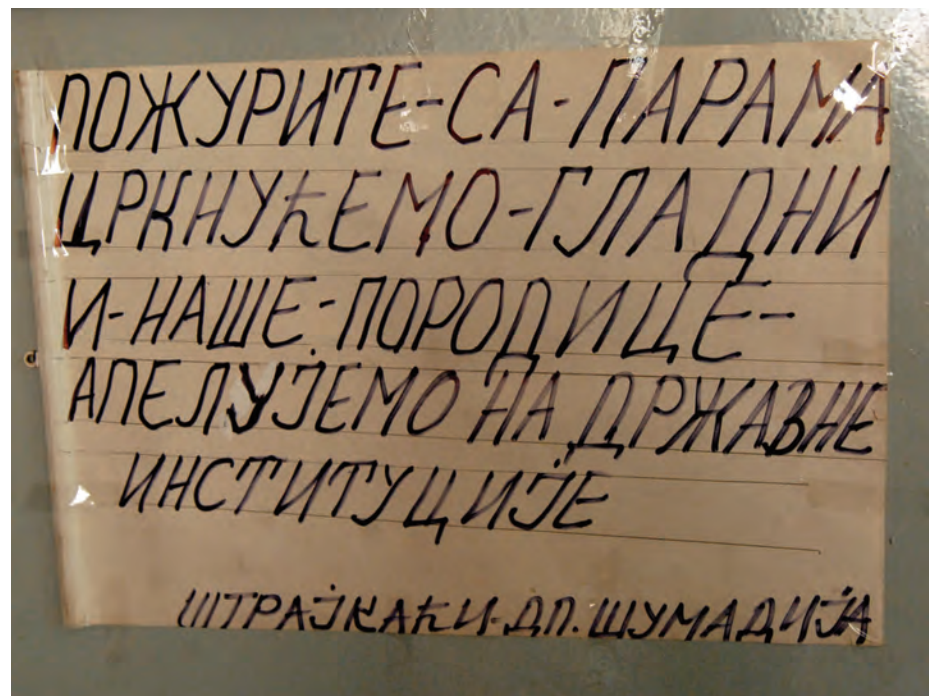 ПОЖУРИТЕ-СА-ПАРАМА
ЦРКНУЋЕМО-ГЛАДНИ
И-НАШЕ-ПОРОДИЦЕ-
АПЕЛУЈЕМО НА ДРЖАВНЕ
ИНСТИТУЦИЈЕ
ШТРАЈКАЋИ-ДП. ШУМАДИЈА